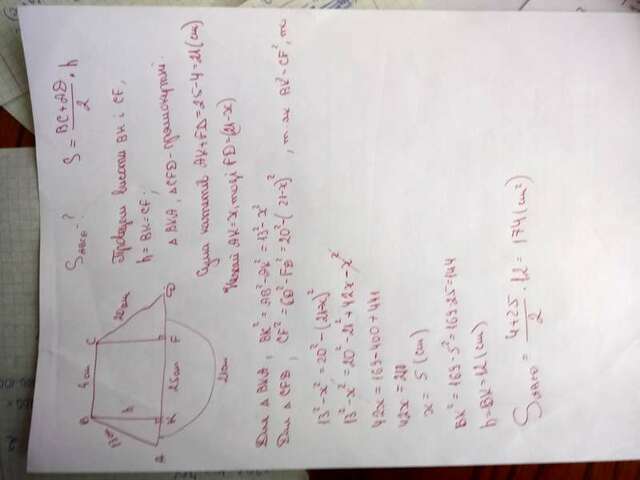 S ABCD - ?
S = BC+AD / 2 · h
B 4 cm C
13 cm h 20 cm
A K 25 cm F D
21 cm
Проведем висоти BK і CF,
h = BK = CF;
△ BKA, △ CFD - прямокутні.
Сума катетів AK+FD = 25-4 = 21 (cm)
Нехай AK = x, тоді FD = (21-x)
Для △ BKA, BK² = AB² - AK² = 13² - x²
Для △ CFD, CF² = CD² - FD² = 20² - (21-x)², т як BK² = CF², то
13² - x² = 20² - (21-x)²
13² - x² = 20² - 21² + 42x - x²
42x = 169 - 400 + 441
42x = 210
x = 5 (cm)
BK² = 169 - 5² = 169-25 = 144
h = BK = 12 (cm)
S ABCD = 4+25 / 2 · 12 = 174 (cm²)